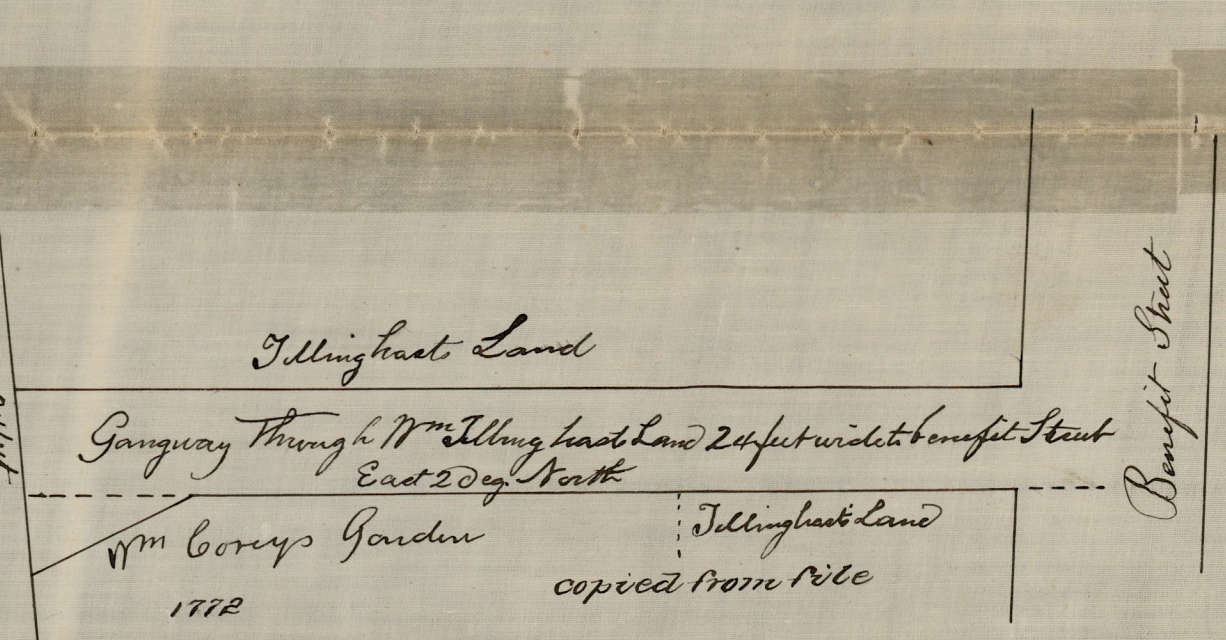 Tillinghasts Land
Gangway Through Wm Tillinghasts Land 24 feet wide to benefit Street
East 2 Deg. North
Benefit Street
Wm Coreys Garden
Tillinghasts Land
copied from file
1772